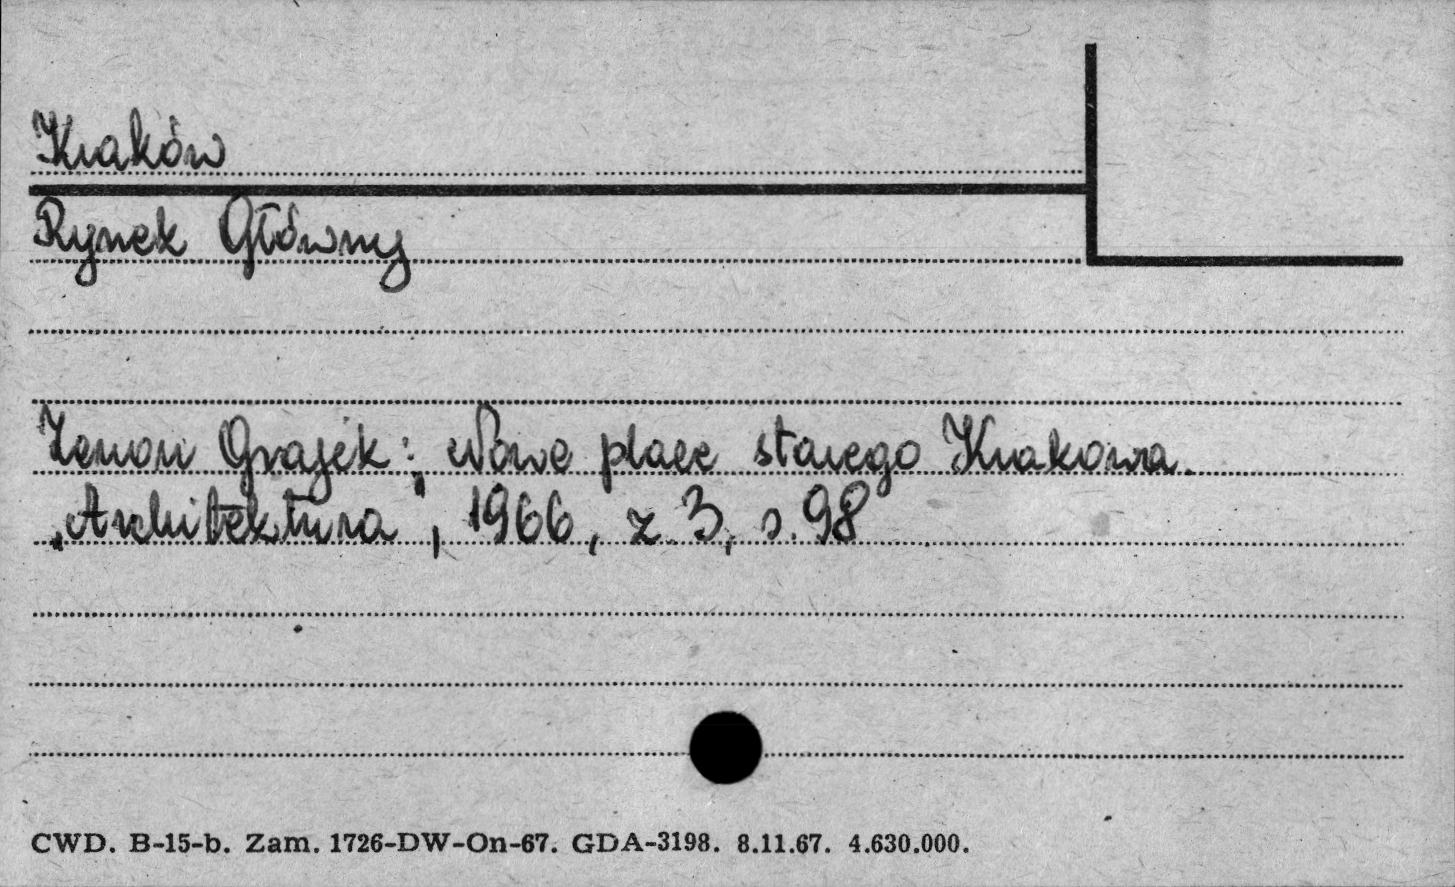 Kraków
Rynek Główny
Zenon Grajek: Nowe place starego Krakowa.
„Architektura", 1966, z. 3, s. 98
CWD. B-15-b. Zam. 1726-DW-On-67. GDA-3198. 8.11.67. 4.630.000.